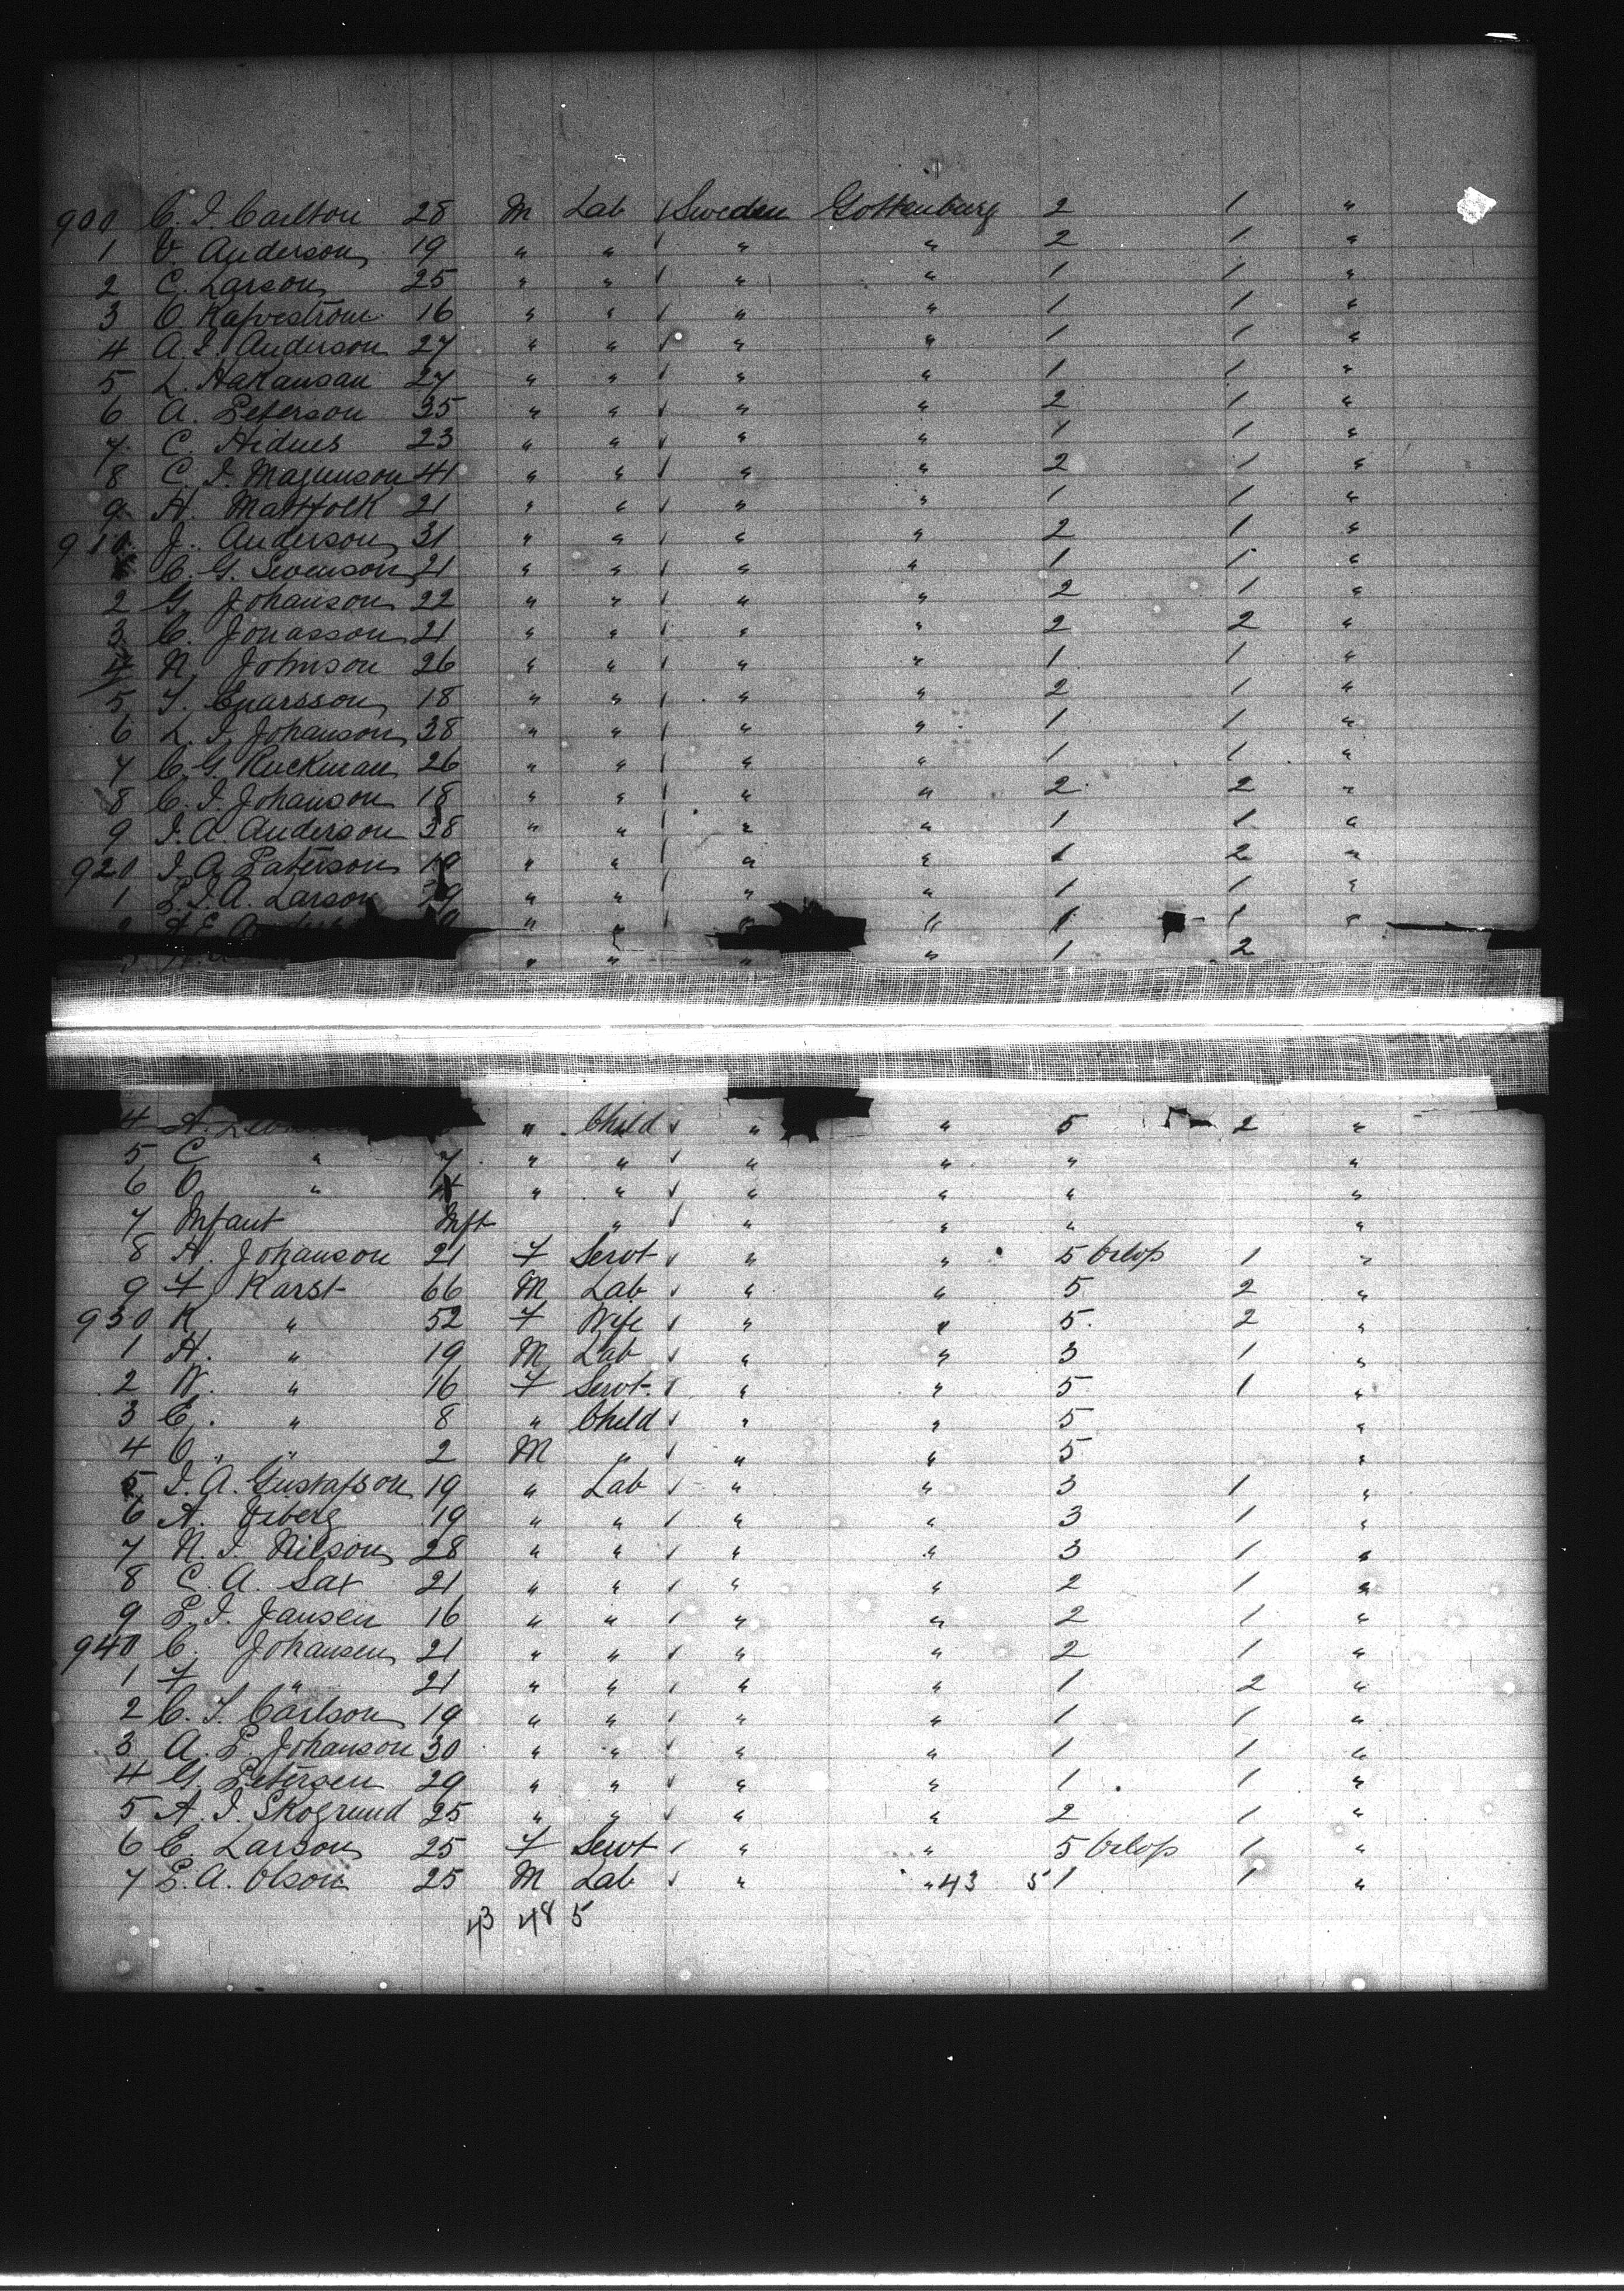 900 C. I. Carlton 28 M Lab ✓ Sweden Gottenburg 2 1 "
1 V. Anderson 19 " " ✓ " " 2 1 "
2 C. Larson 25 " " ✓ " " 1 1 "
3 O. Kafvestrom 16 " " ✓ " " 1 1 "
4 A. I. Anderson 27 " " ✓ " " 1 1 "
5 L. Hakansan 27 " " ✓ " " 1 1 "
6 A. Peterson 35 " " ✓ " " 2 1 "
7 C. 23 " " ✓ " " 1 1 "
8 C. I. Magunson 41 " " ✓ " " 2 1 "
9 H. 21 " " ✓ " " 1 1 "
910 J. Anderson 31 " " ✓ " " 2 1 "
C. G. Swenson 21 " " ✓ " " 1 1 "
2 G. Johanson 22 " " ✓ " " 2 1 "
3 C. Jonasson 21 " " ✓ " " 2 2 "
4 N. Johnson 26 " " ✓ " " 1 1 "
5 18 " " ✓ " " 2 1 "
6 L. I. Johanson 38 " " ✓ " " 1 1 "
7 C. G. Ruckman 26 " " ✓ " " 1 1 "
8 C. I. Johanson 18 " " ✓ " " 2 2 "
9 I. A. Anderson 38 " " ✓ " " 1 1 "
920 I. A. Paterson 19 " " ✓ " " 1 2 "
1 P. I. A. Larson " " ✓ " " 1 1 "
2 A. E. " " ✓ " " 1 1 "
" " " " 1 2
4 A. " Child ✓ " " 5 2 "
5 C " 7 " " ✓ " " " "
6 O " " " ✓ " " " "
7 Infant Inft " ✓ " " " "
8 A. Johanson 21 F Servt ✓ " " 5 Orlop 1 "
9 F. Karst 66 M Lab ✓ " " 5 2 "
930 K " 52 F Wife ✓ " " 5 2 "
1 A. " 19 M Lab ✓ " " 3 1 "
2 N. " 16 F Servt ✓ " " 5 1 "
3 E. " 8 " Child ✓ " " 5 "
4 O. " 2 M " ✓ " " 5 "
5 I. A. Gustafson 19 " Lab ✓ " " 3 1 "
6 A. 19 " " ✓ " " 3 1 "
7 N. I. Nilson 28 " " ✓ " " 3 1 "
8 C. A. Sax 21 " " ✓ " " 2 1 "
9 P. I. Jansen 16 " " ✓ " " 2 1 "
940 C. Johansen 21 " " ✓ " " 2 1 "
1 F " 21 " " ✓ " " 1 2 "
2 C. J. Carlson 19 " " ✓ " " 1 1 "
3 A. P. Johanson 30 " " ✓ " " 1 1 "
4 G. Petersen 29 " " ✓ " " 1 1 "
5 A. I. Skogrund 25 " " ✓ " " 2 1 "
6 C. Larson 25 F Servt ✓ " " 5 Orlop 1 "
7 P. A. Olson 25 M Lab ✓ " " 43 5 1 1 "
43 48 5